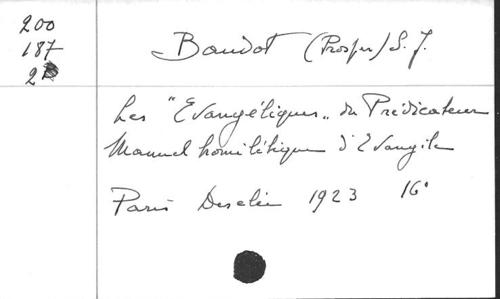 200
187
2
Baudot (Prosper) S. J.
Les "Evangéliques" du Prédicateur
Manuel homilétique d'Evangile
Paris Desclée 1923 16°